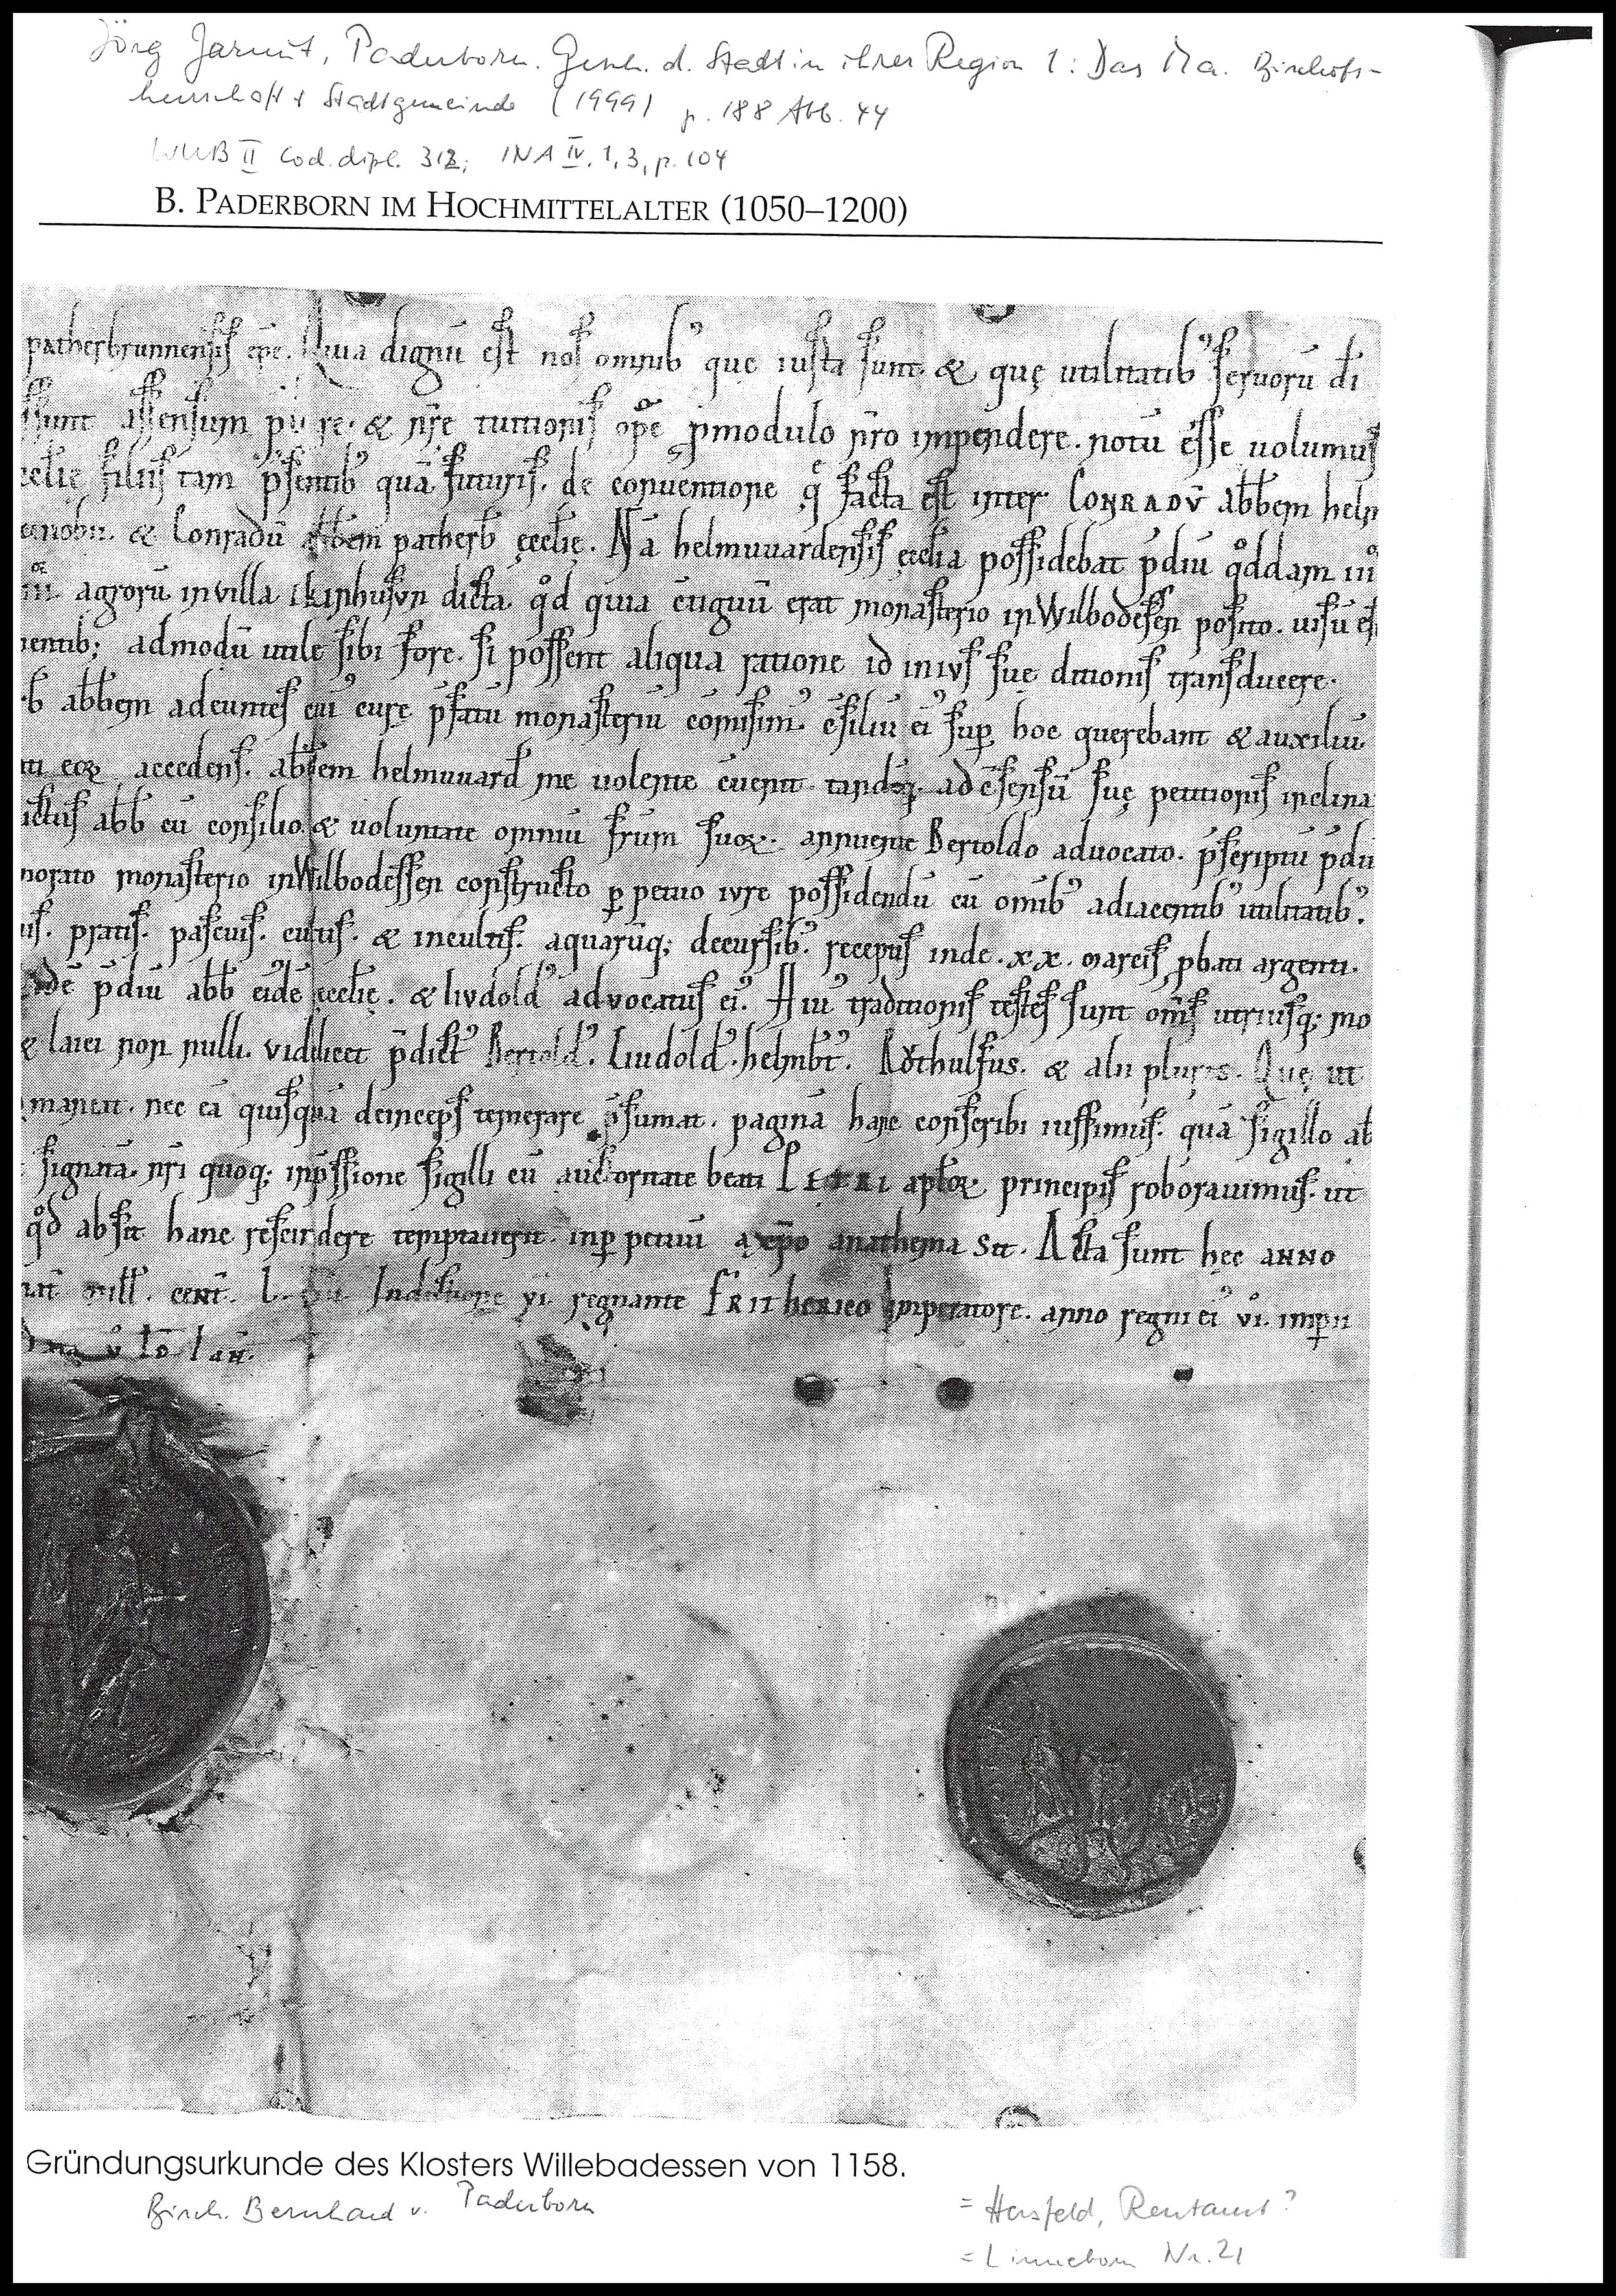 Jörg Jarnut, Paderborn. Gesch. d. Stadt in ihrer Region 1: Das Ma. Bischofs-
herrschaft + Stadtgemeinde (1999) p. 188 Abb. 44
WUB II Cod. dipl. 312; INA IV, 1, 3, p. 104
B. PADERBORN IM HOCHMITTELALTER (1050–1200)
patherbrunnensis ep̄c. Quia dignū est nos omnib' quę iusta sunt & quę utilitatib' seruorū dī
sunt assensum & nr̄e tuitionis opē p̱modulo nr̄o impendere. notū esse uolumus
filiis tam p̄sentib' quā futuris. de conuentione q̄ facta est inter CONRADV̄ abb̄em helm
& Conradū abb̄em patherb̄ ęccl̄ię. Nā helmuuardensis ęccl̄ia possidebat p̄diū qͦddam
agrorū in villa dicta qͦd quia c̄tiguū erat monasterio in Wilbodessen posito. uisū es
admodū utile sibi fore. si possent aliqua ratione id in ivs suę ditionis transducere.
b̄ abb̄em adeuntes cui' curę p̄fatū monasteriū comisim'. c̄siliū ei' sup̱ hoc querebant & auxiliū.
eoꝝ accedens. abb̄em helmuuard̄ me uolente c̄uenit tandēq; ad c̄sensū suę petitionis inclina
abb̄ cū consilio & uoluntate omniū fr̄um suoꝝ. annuente Bertoldo aduocato. p̄scriptū p̄diū
monasterio in Wilbodessen constructo p̱petuo ivre possidendū cū omīb' adiacentib' utilitatib'.
pratis. pascuis. cultis. & incultis. aquarūq; decursib'. receptis inde .xx. marcis p̱bati argenti.
p̄diū abb̄ eidē ęccl̄ię. & livdold' advocatus ei'. Hui' traditionis testes sunt om̄s utriusq; mo
& laici non nulli. videlicet p̄dict' Bertold'. Liudold'. helmb̄t'. Rͦothulfus. & alii plures. Quę ut
maneat. nec eā quisquā deinceps temerare p̄sumat. paginā hanc conscribi iussimus. quā sigillo ab
signatā. nr̄i quoq; inp̄ssione sigilli cū auctoritate beati PETRI apl̄oꝝ principis roborauimus. ut
qͦd absit hanc rescindere temptauerit. inp̱petuū a xp̄o anathema sit. Acta sunt hęc anno
mill̄. cent̄. L. Indictione vi. regnante FRITHERICO imperatore. anno regni ei' vi. imp̱ii
Gründungsurkunde des Klosters Willebadessen von 1158.
Bisch. Bernhard v. Paderborn
= Hersfeld, Rentamt?
= Linneborn Nr. 21